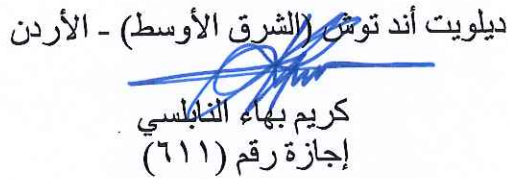 ديلويت أند توش (الشرق الأوسط) - الأردن
كريم بهاء النابلسي
إجازة رقم (٦١١)